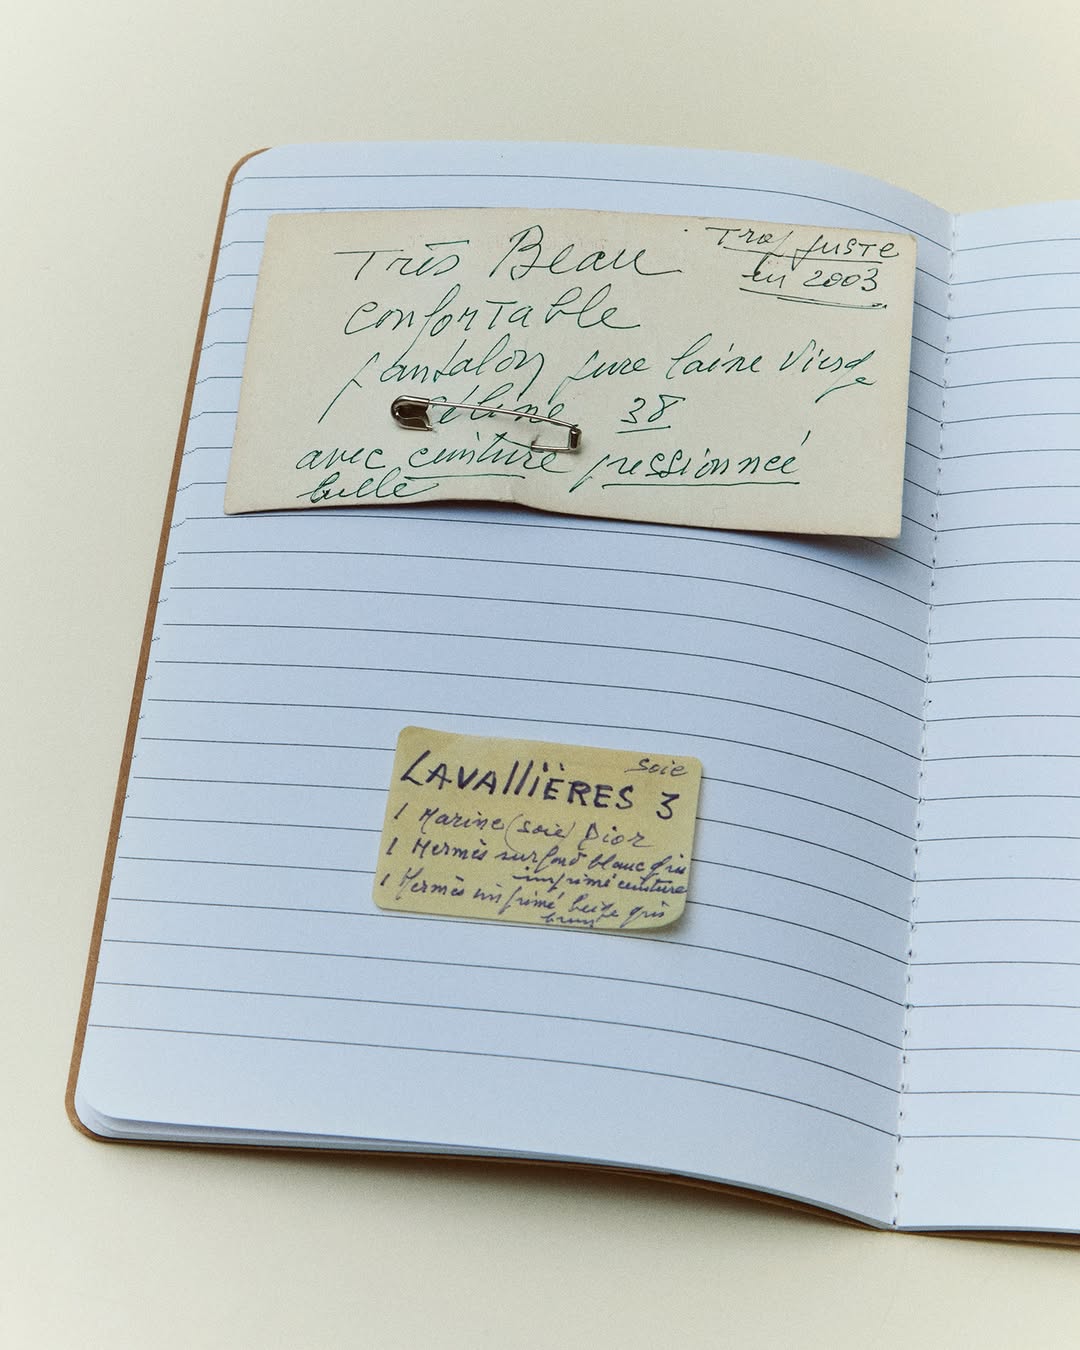 Très Beau
Trop juste
en 2003
confortable
pantalon pure laine vierge
Céline 38
avec ceinture pressionnée
belle
soie
LAVALLIÈRES 3
1 Marine (soie) Dior
1 Hermès sur fond blanc gris
imprimé ceinture
1 Hermès imprimé beige gris
brun